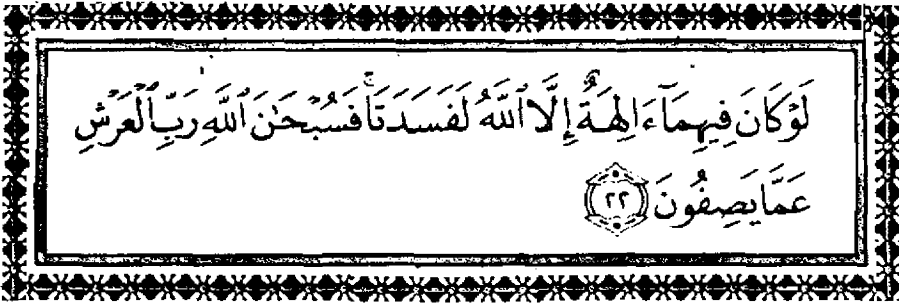 لَوۡ كَانَ فِيهِمَآ ءَالِهَةٌ إِلَّا ٱللَّهُ لَفَسَدَتَاۚ فَسُبۡحَٰنَ ٱللَّهِ رَبِّ ٱلۡعَرۡشِ
عَمَّا يَصِفُونَ ٢٢